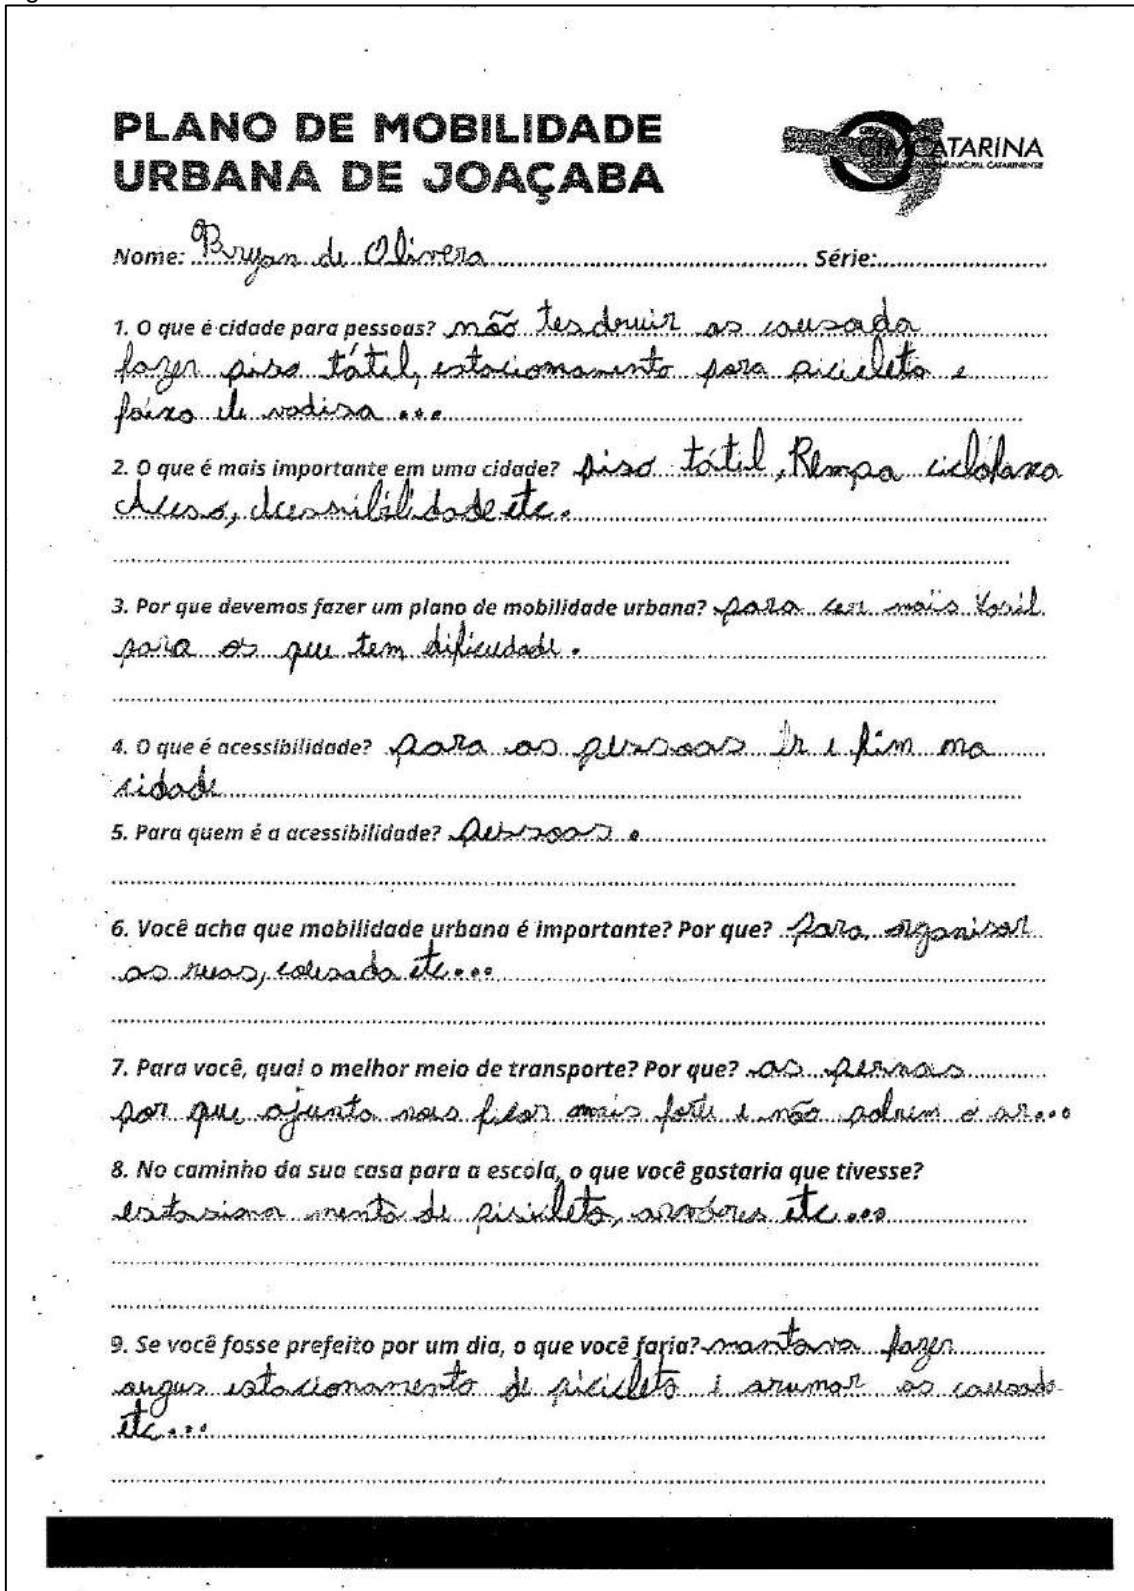 PLANO DE MOBILIDADE
URBANA DE JOAÇABA
CIMCATARINA
Nome: Bryan de Olivera Série:
1. O que é cidade para pessoas? não tesdruir as causada
fazer piso tátil, estacionamento para piicileta e
faixa de
2. O que é mais importante em uma cidade? piso tátil, Rempa ciclofaxa
etc.
3. Por que devemos fazer um plano de mobilidade urbana? para cer mais
para os que tem dificudade.
4. O que é acessibilidade? para as pessoas ir e fim na
cidade
5. Para quem é a acessibilidade? pessoas.
6. Você acha que mobilidade urbana é importante? Por que? para organisar
as ruas, causada etc...
7. Para você, qual o melhor meio de transporte? Por que? as pernas
por que ajunta nois ficar mais forte e não poluem o ar...
8. No caminho da sua casa para a escola, o que você gostaria que tivesse?
mento de etc...
9. Se você fosse prefeito por um dia, o que você faria? mantava fazer
augus estacionamento de picicleta i arumar as causada
etc...